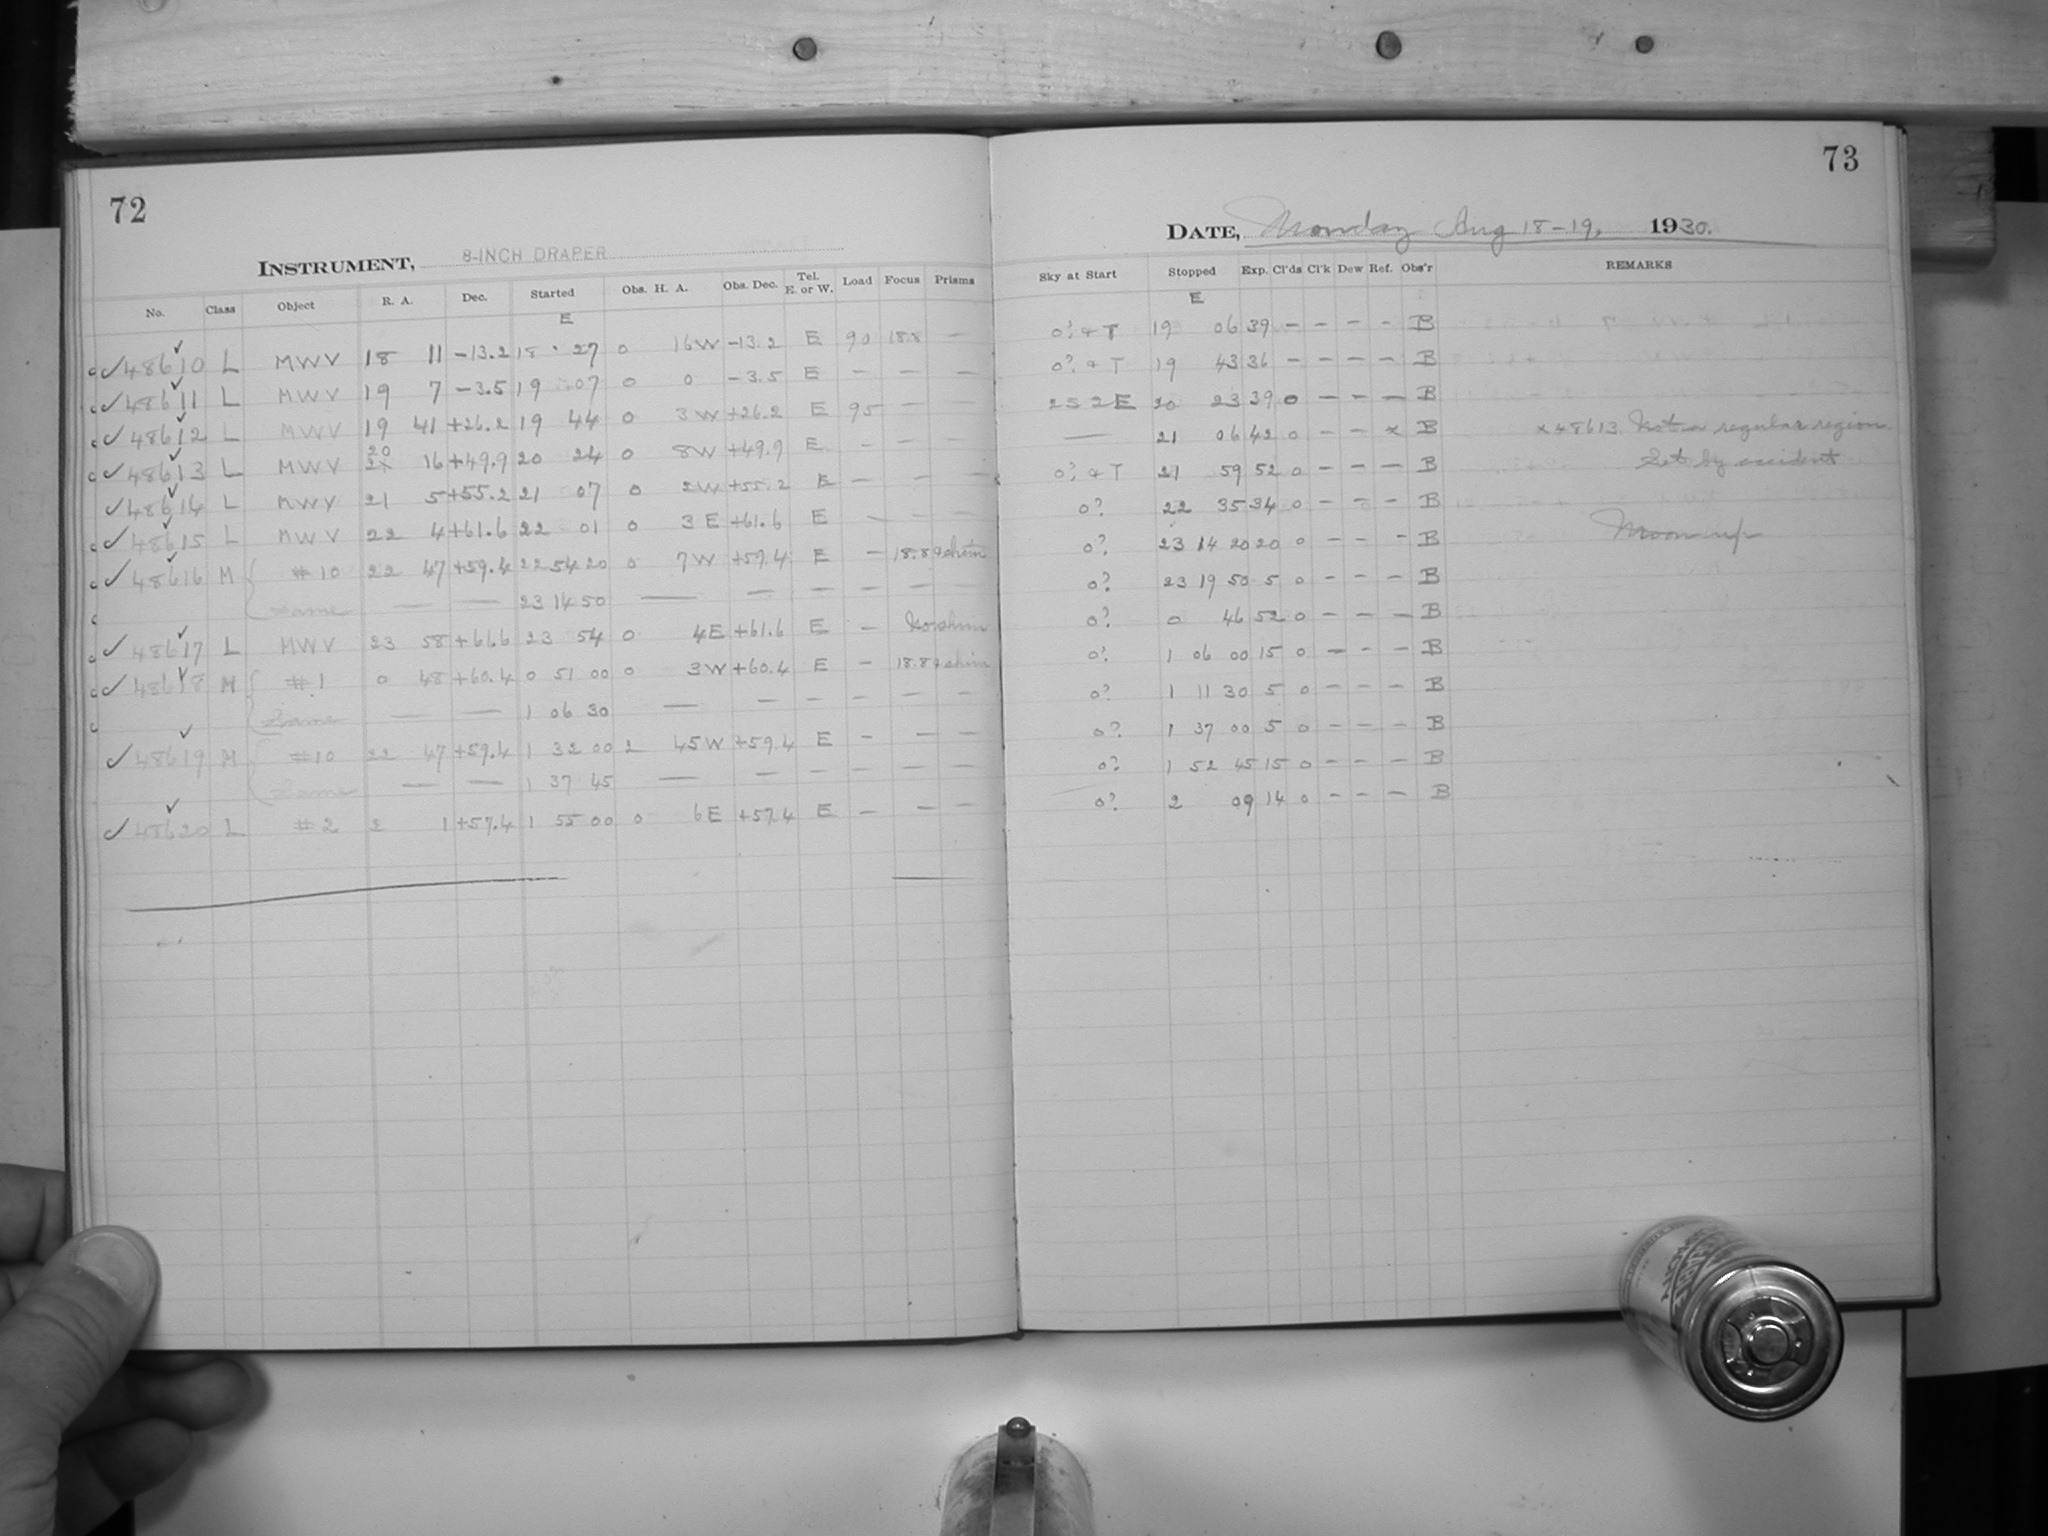 72
INSTRUMENT, 8-INCH DRAPER
No. Class Object R. A. Dec. Started Obs. H. A. Obs. Dec. Tel. E. or W. Load Focus Prisms
E
✓48610 L MWV 18 11 -13.2 18 27 0 16W -13.2 E 90 18.8 —
✓48611 L MWV 19 7 -3.5 19 07 0 0 -3.5 E — — —
✓48612 L MWV 19 41 +26.2 19 44 0 3W +26.2 E 95 — —
20
✓48613 L MWV 16 +49.9 20 24 0 8W +49.9 E — — —
✓48614 L MWV 21 5 +55.2 21 07 0 2W +55.2 E — — —
✓48615 L MWV 22 4 +61.6 22 01 0 3E +61.6 E — — —
✓48616 M #10 22 47 +59.4 22 54 20 0 7W +59.4 E — 18.8 + shim
Same — — 23 14 50 — — — — — —
✓48617 L MWV 23 58 +61.6 23 54 0 4E +61.6 E — No shim
✓48618 M #1 0 48 +60.4 0 51 00 0 3W +60.4 E — 18.8 + shim
Same — — 1 06 30 — — — — — —
✓48619 M #10 22 47 +59.4 1 32 00 2 45W +59.4 E — — —
Same — — 1 37 45 — — — — — —
✓48620 L #2 2 1 +57.4 1 55 00 0 6E +57.4 E — — —
73
DATE, Monday Aug 18-19, 1930.
Sky at Start Stopped Exp. Cl'ds Cl'k Dew Ref. Obs'r REMARKS
E
0? + T 19 06 39 — — — — B
0? + T 19 43 36 — — — — B
2S 2E 20 23 39 0 — — — B
— 21 06 42 0 — — x B x48613 Not a regular region
0? + T 21 59 52 0 — — — B Set by accident
0? 22 35 34 0 — — — B
0? 23 14 20 20 0 — — — B Moon up
0? 23 19 50 5 0 — — — B
0? 0 46 52 0 — — — B
0? 1 06 00 15 0 — — — B
0? 1 11 30 5 0 — — — B
0? 1 37 00 5 0 — — — B
0? 1 52 45 15 0 — — — B
0? 2 09 14 0 — — — B